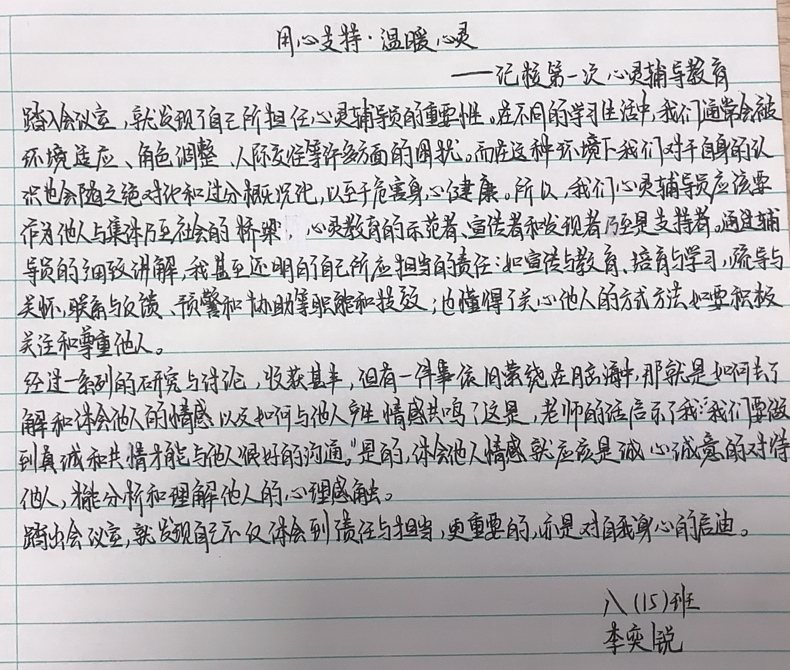 用心支持·温暖心灵
——记校第一次心灵辅导教育
踏入会议室，就发现了自己所担任心灵辅导员的重要性。在不同的学习生活中，我们通常会被
环境适应、角色调整、人际交往等许多方面的困扰。而在这种环境下我们对于自身的认
识也会随之绝对化和过分概况化，以至于危害身心健康。所以，我们心灵辅导员应该要
作为他人与集体乃至社会的桥梁，心灵教育的示范者、宣传者和发现者乃至是支持者。通过辅
导员的细致讲解，我甚至还明白了自己所应担当的责任：如宣传与教育、培育与学习，疏导与
关怀，联系与反馈、预警和协助等职能和技效；也懂得了关心他人的方式方法如要积极
关注和尊重他人。
经过一系列的研究与讨论，收获甚丰，但有一件事依旧萦绕在脑海中，那就是如何去了
解和体会他人的情感以及如何与他人产生情感共鸣了这是，老师的话启示了我："我们要做
到真诚和共情才能与他人很好的沟通。"是的，体会他人情感就应该是诚心诚意的对待
他人，才能分析和理解他人的心理感触。
踏出会议室，就发现自己不仅体会到责任与担当，更重要的，亦是对自我身心的启迪。
八(15)班
李奕锐